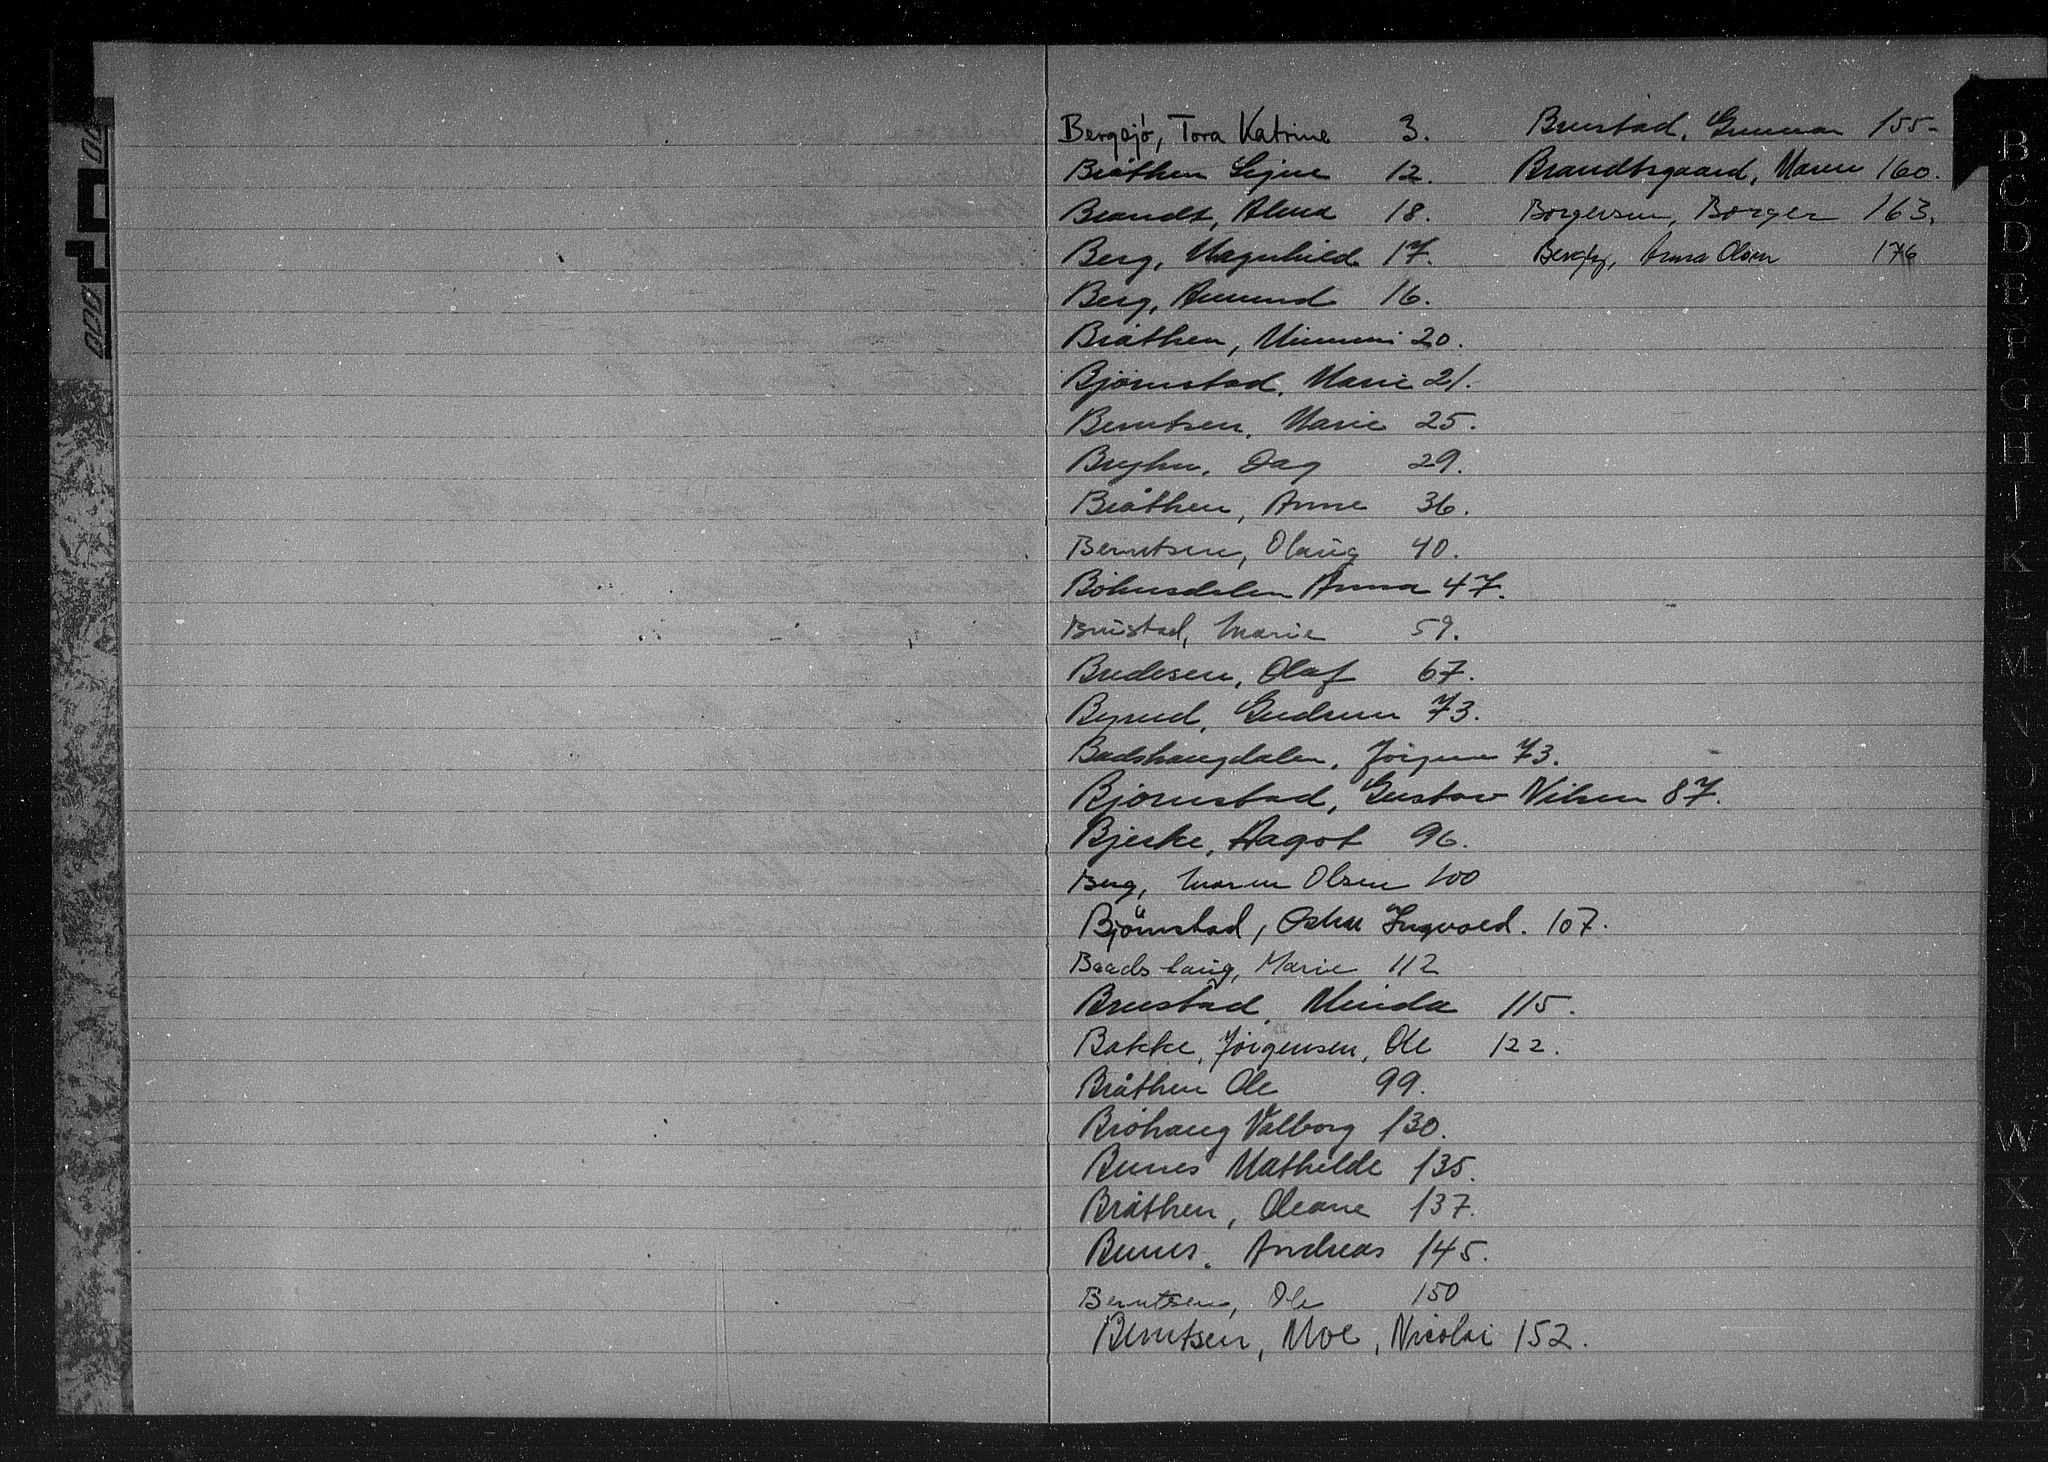 Bergsjö, Tora Katrine 3.
Bråthen Signe 12.
Brandt, Alma 18.
Berg, Magnhild 17.
Berg, Amund 16.
Bråthen, Mimmi 20.
Bjørnstad, Marie 21.
Berntsen, Marie 25.
Bryhn, Dag 29.
Bråthen, Anne 36.
Berntsen, Olaug 40.
Böhnsdalen Anna 47.
Brustad, Marie 59.
Bredesen, Olaf 67.
Byrud, Gudrun 73.
Badshaugdalen, Jörgine 73.
Bjørnstad, Gustav Nilsen 87.
Bjerke, Aagot 96.
Berg, Maren Olsen 100
Bjørnstad, Oskar Ingvald. 107.
Baadshaug, Marie 112
Brustad, Minda 115.
Bakke, Jørgensen, Ole 122.
Bråthen Ole 99.
Bröhaug Valborg 130.
Bunes Mathilde 135.
Bråthen, Oleane 137.
Bunes, Andreas 145.
Berntsen, Ole 150
Berntsen, Moe, Nicolai 152.
Brustad, Gunnar 155-
Brandtsgaard, Maren 160.
Borgersen, Borger 163.
Anna Olsen 176
B
C
D
E
F
G
H
I
J
K
L
M
N
O
P
W
X
Y
Z